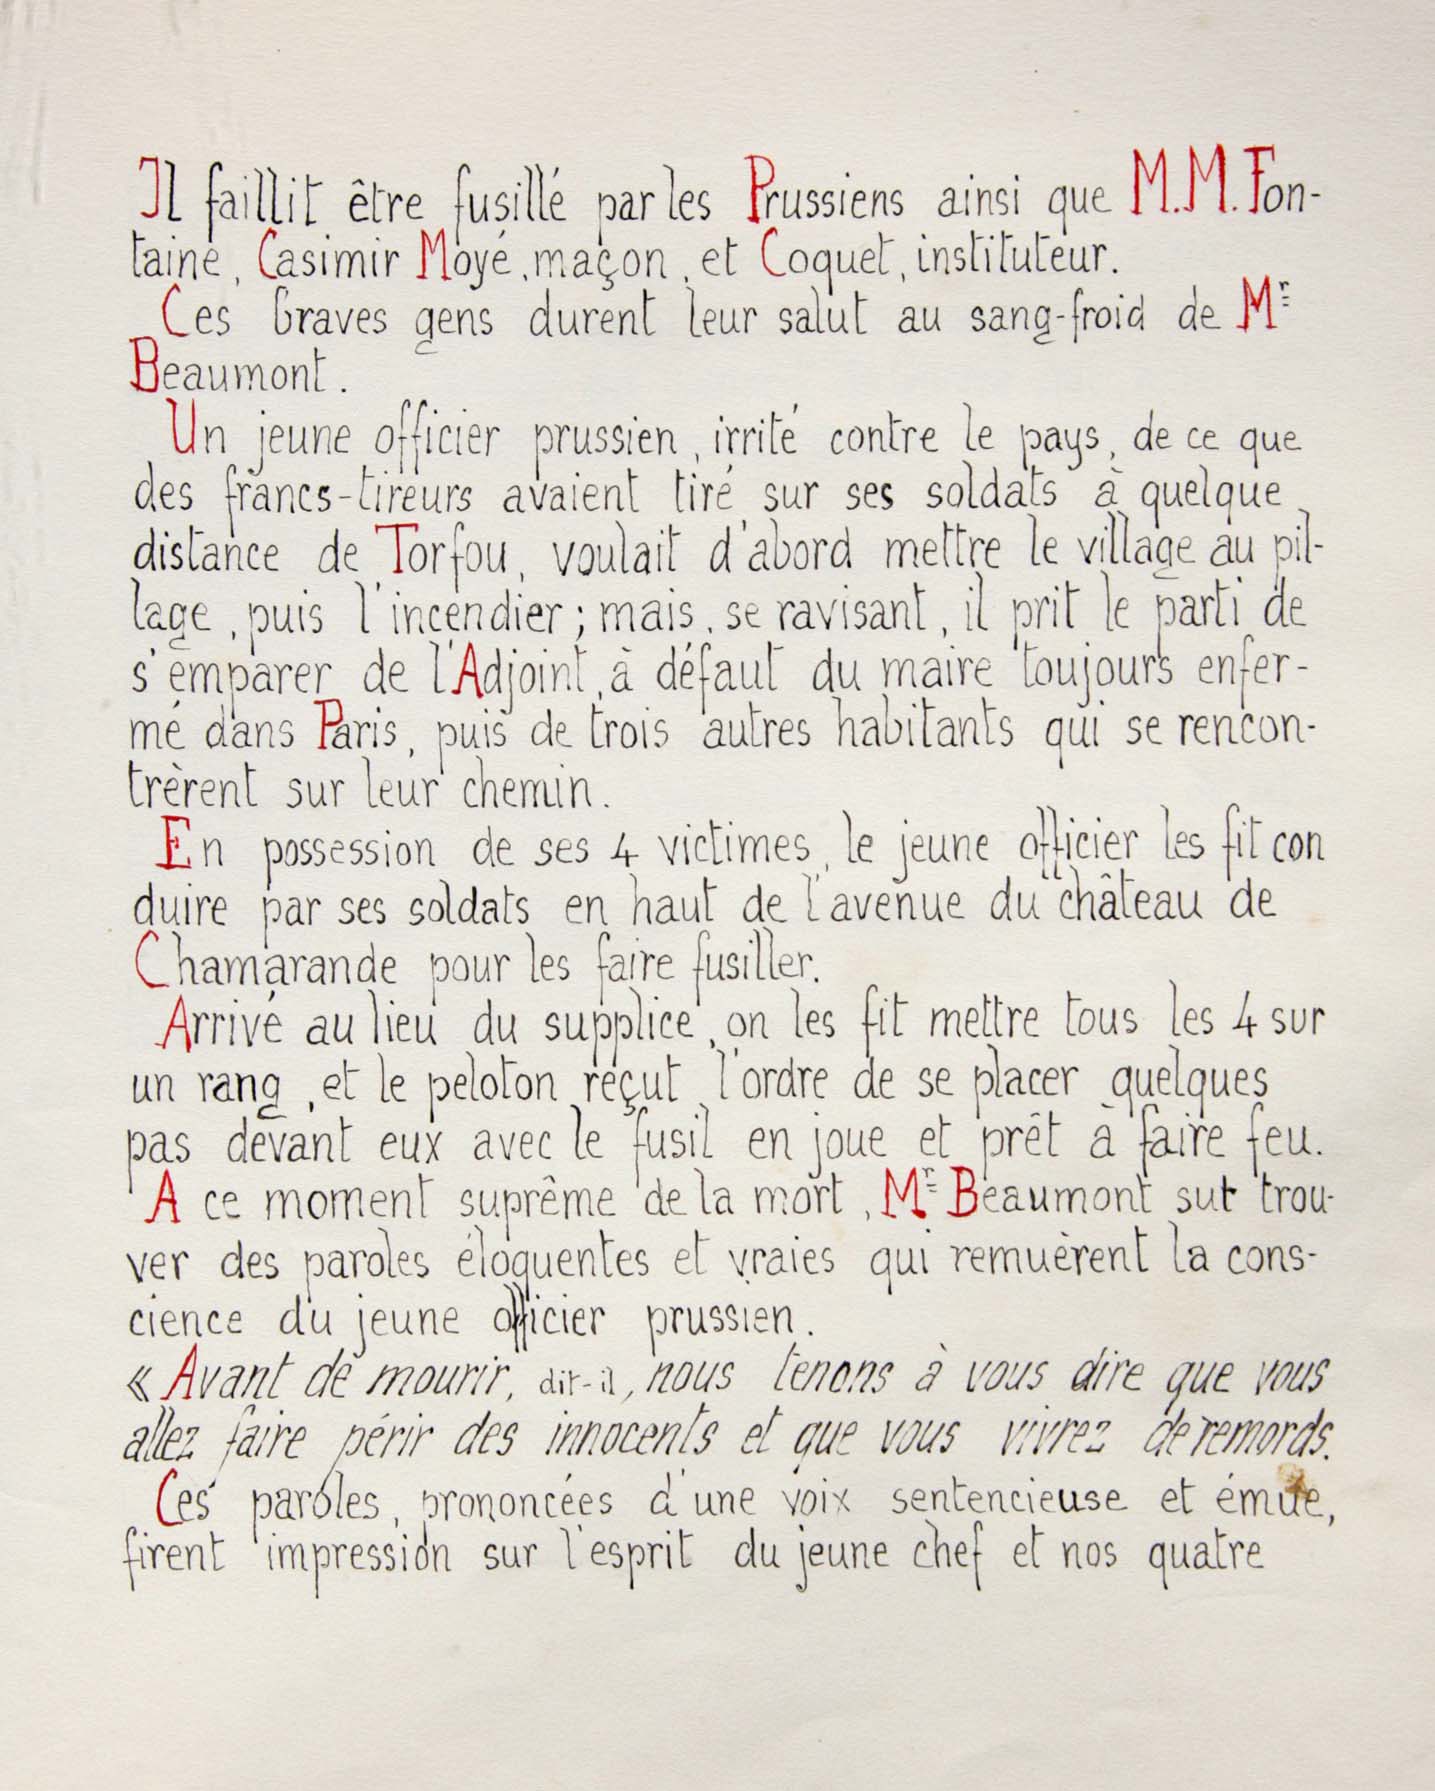 Il faillit être fusillé par les Prussiens ainsi que M.M. Fon-
taine, Casimir Moyé, maçon, et Coquet, instituteur.
Ces braves gens durent leur salut au sang-froid de Mr
Beaumont.
Un jeune officier prussien, irrité contre le pays, de ce que
des francs-tireurs avaient tiré sur ses soldats à quelque
distance de Torfou, voulait d'abord mettre le village au pil-
lage, puis l'incendier; mais, se ravisant, il prit le parti de
s'emparer de l'Adjoint, à défaut du maire toujours enfer-
mé dans Paris, puis de trois autres habitants qui se rencon-
trèrent sur leur chemin.
En possession de ses 4 victimes, le jeune officier les fit con
duire par ses soldats en haut de l'avenue du château de
Chamarande pour les faire fusiller.
Arrivé au lieu du supplice, on les fit mettre tous les 4 sur
un rang, et le peloton reçut l'ordre de se placer quelques
pas devant eux avec le fusil en joue et prêt à faire feu.
A ce moment suprême de la mort, Mr Beaumont sut trou-
ver des paroles éloquentes et vraies qui remuèrent la cons-
cience du jeune officier prussien.
« Avant de mourir, dit-il, nous tenons à vous dire que vous
allez faire périr des innocents et que vous vivrez de remords.
Ces paroles, prononcées d'une voix sentencieuse et émue,
firent impression sur l'esprit du jeune chef et nos quatre